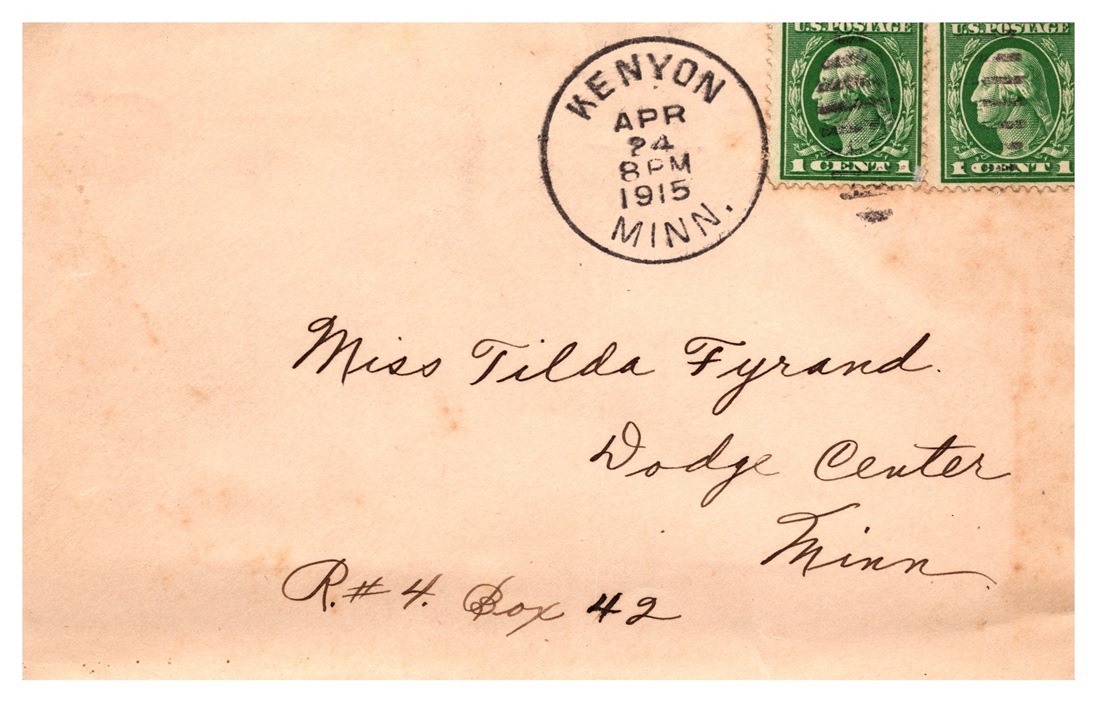 KENYON
APR
24
8 PM
1915
MINN.
U.S. POSTAGE
1 CENT 1
U.S. POSTAGE
1 CENT 1
Miss Tilda Fyrand.
Dodge Center
Minn
R. # 4. Box 42